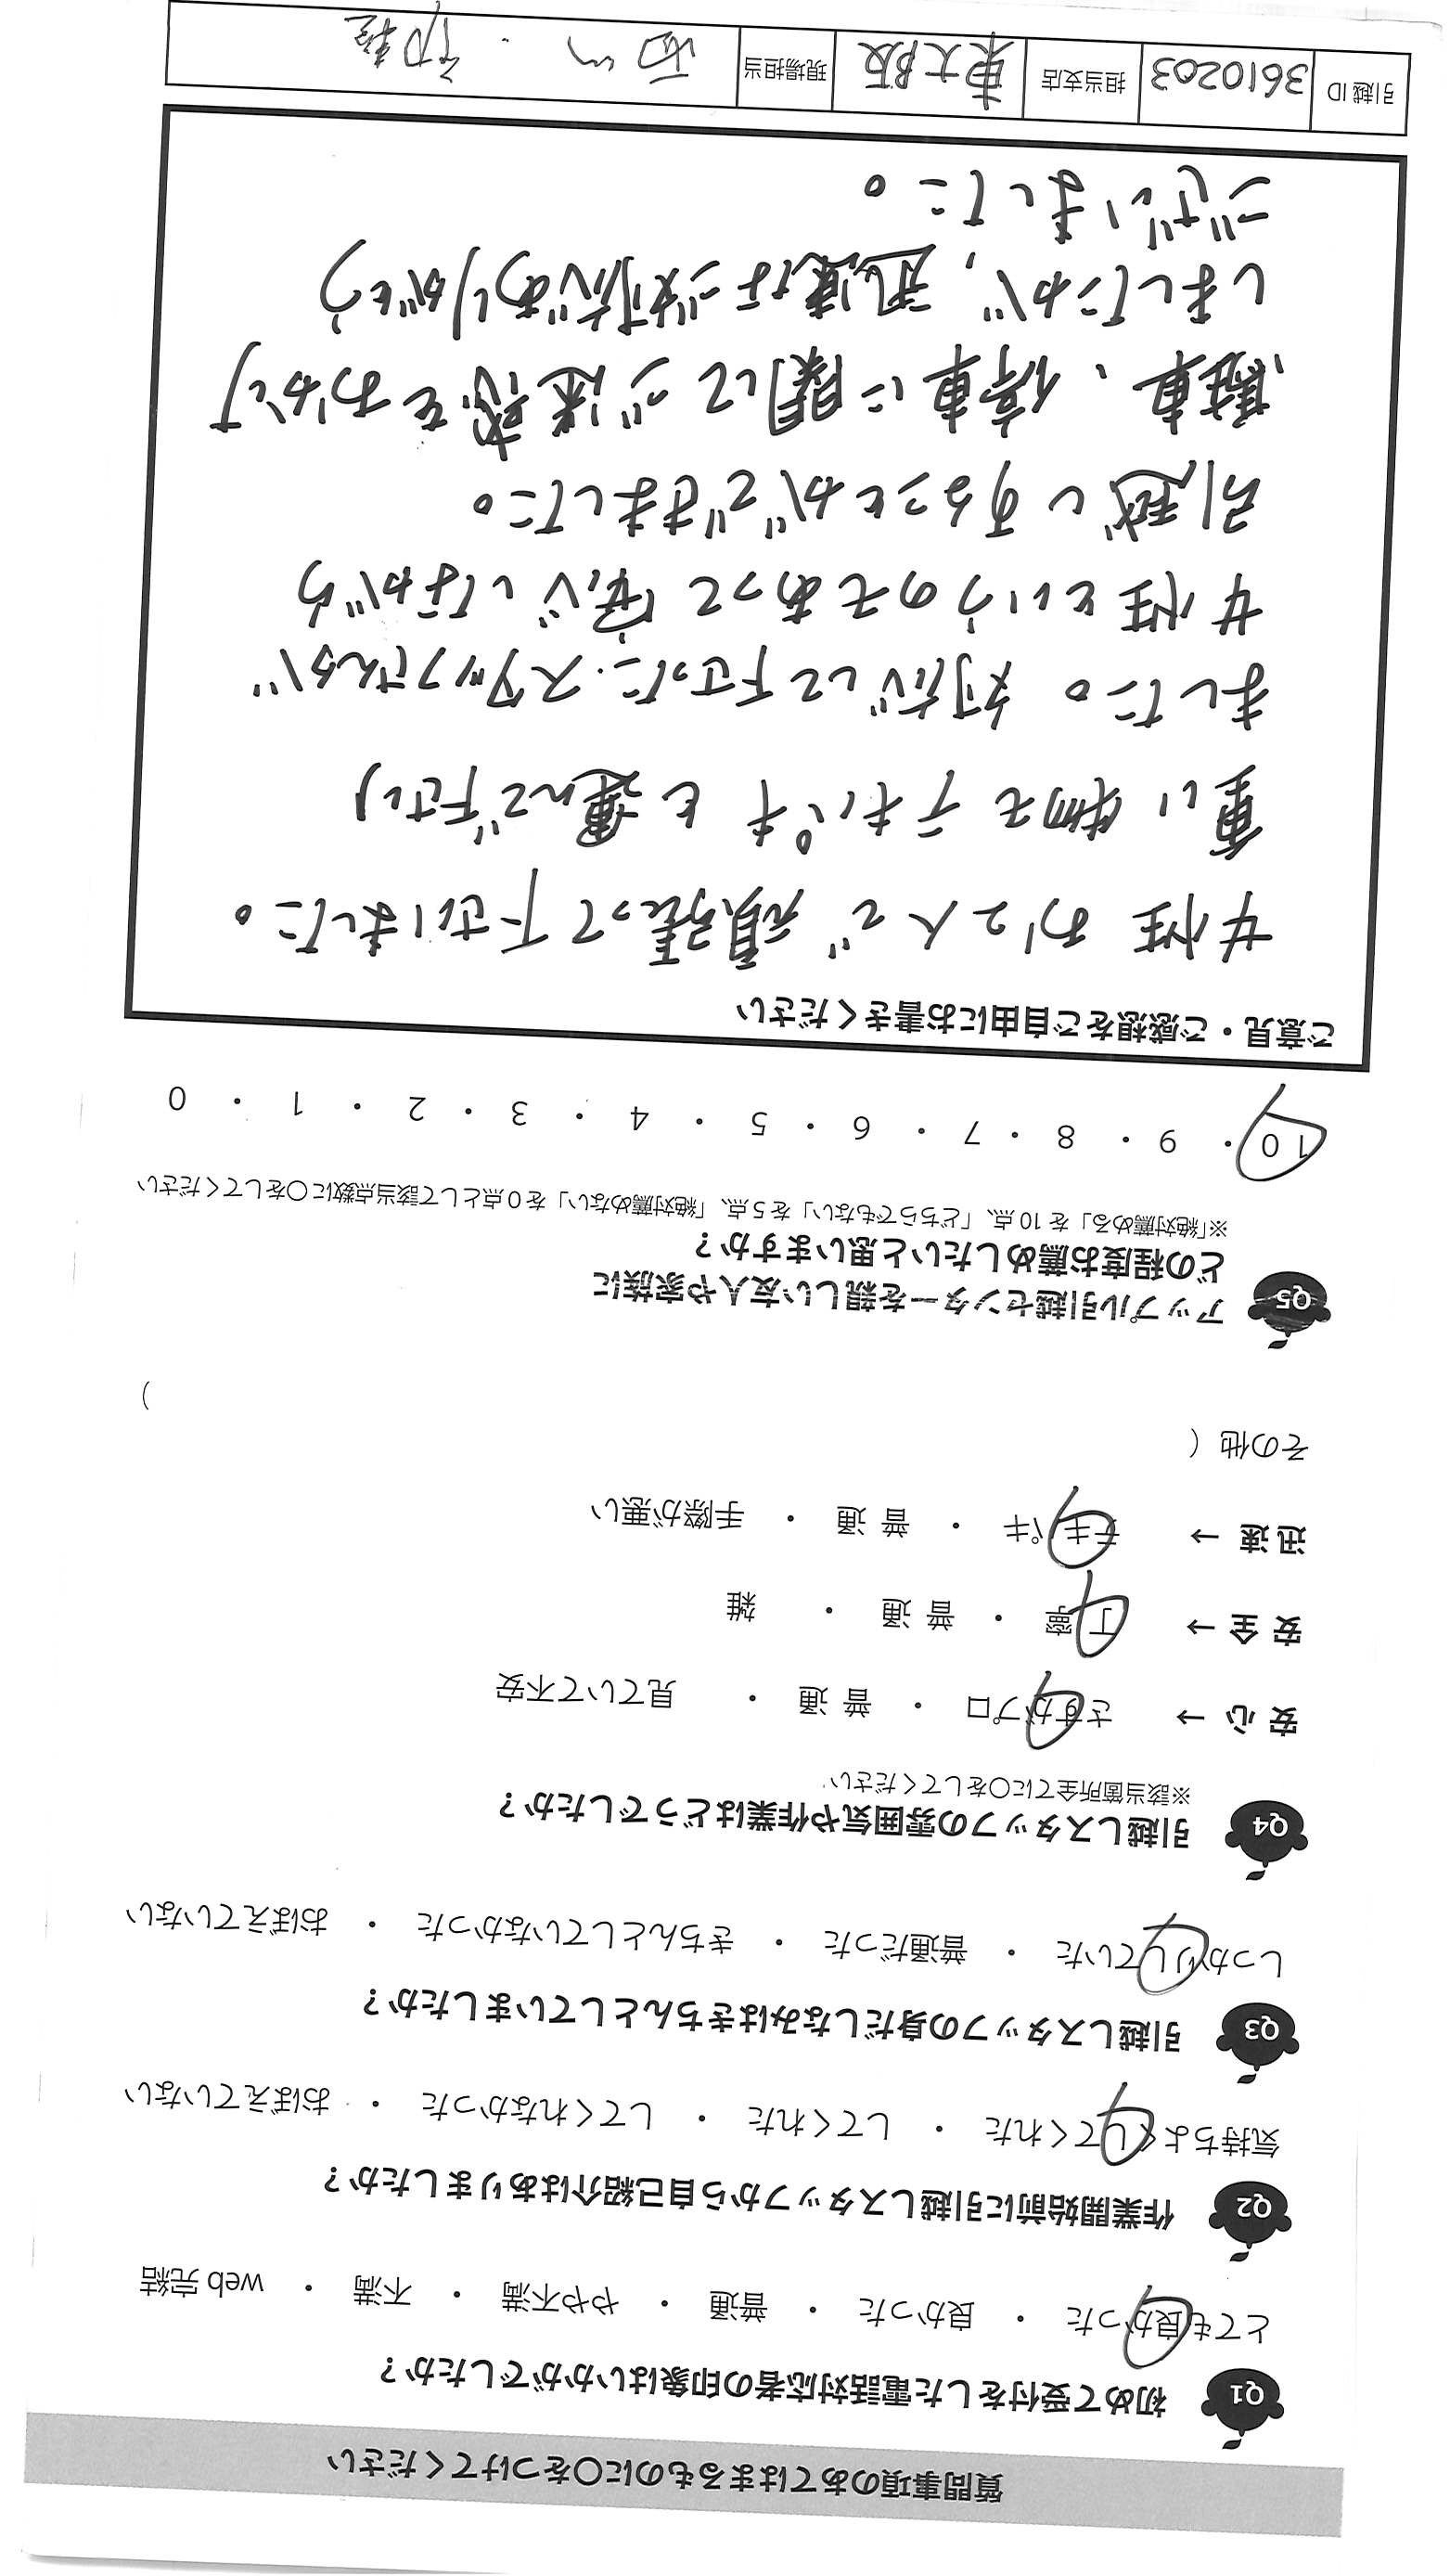 質問事項のあてはまるものに○をつけてください
Q1 初めて受付をした電話対応者の印象はいかがでしたか？
とても良かった ・ 良かった ・ 普通 ・ やや不満 ・ 不満 ・ web 完結
Q2 作業開始前に引越しスタッフから自己紹介はありましたか？
気持ちよくしてくれた ・ してくれた ・ してくれなかった ・ おぼえていない
Q3 引越しスタッフの身だしなみはきちんとしていましたか？
しっかりしていた ・ 普通だった ・ きちんとしていなかった ・ おぼえていない
Q4 引越しスタッフの雰囲気や作業はどうでしたか？
※該当箇所全てに○をしてください
安 心 → さすがプロ ・ 普 通 ・ 見ていて不安
安 全 → 丁 寧 ・ 普 通 ・ 雑
迅 速 → テキパキ ・ 普 通 ・ 手際が悪い
その他（ ）
Q5 アップル引越センターを親しい友人や家族に
どの程度お薦めしたいと思いますか？
※「絶対薦める」を 10 点、「どちらでもない」を 5 点、「絶対薦めない」を 0 点として該当点数に○をしてください
10 ・ 9 ・ 8 ・ 7 ・ 6 ・ 5 ・ 4 ・ 3 ・ 2 ・ 1 ・ 0
ご意見・ご感想をご自由にお書きください
女性お2人で頑張って下さいました。
重い物もテキパキと運んで下さい
ました。対応して下さったスタッフさんが
女性というのもあって安心しながら
引越しすることができました。
駐車、停車に関してご迷惑をおかけ
しましたが、迅速なご対応ありがとう
ございました。
引越 ID 3610203 担当支店 東大阪 現場担当